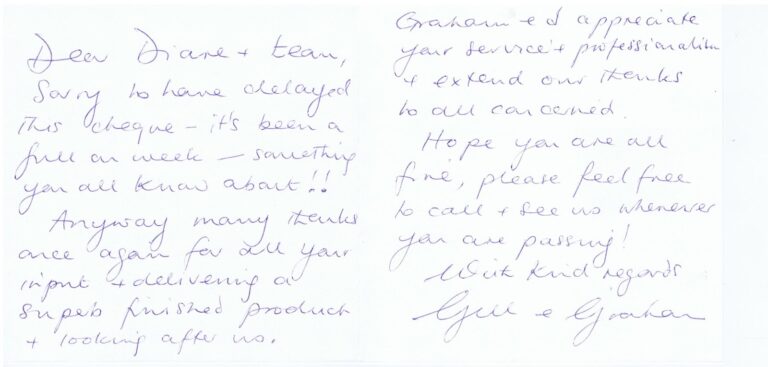 Dear Diane + team,
Sorry to have delayed
this cheque – it's been a
full on week – something
you all know about!!
Anyway many thanks
once again for all your
input + delivering a
superb finished product
+ looking after us.
Graham + I appreciate
your service + professionalism
+ extend our thanks
to all concerned.
Hope you are all
fine, please feel free
to call + see us whenever
you are passing!
With kind regards
Gill & Graham